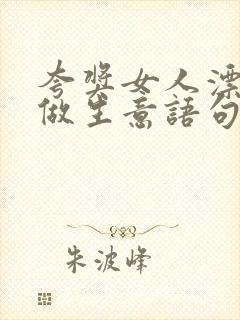 夸獎女人漂
做生意語句
朱波峰